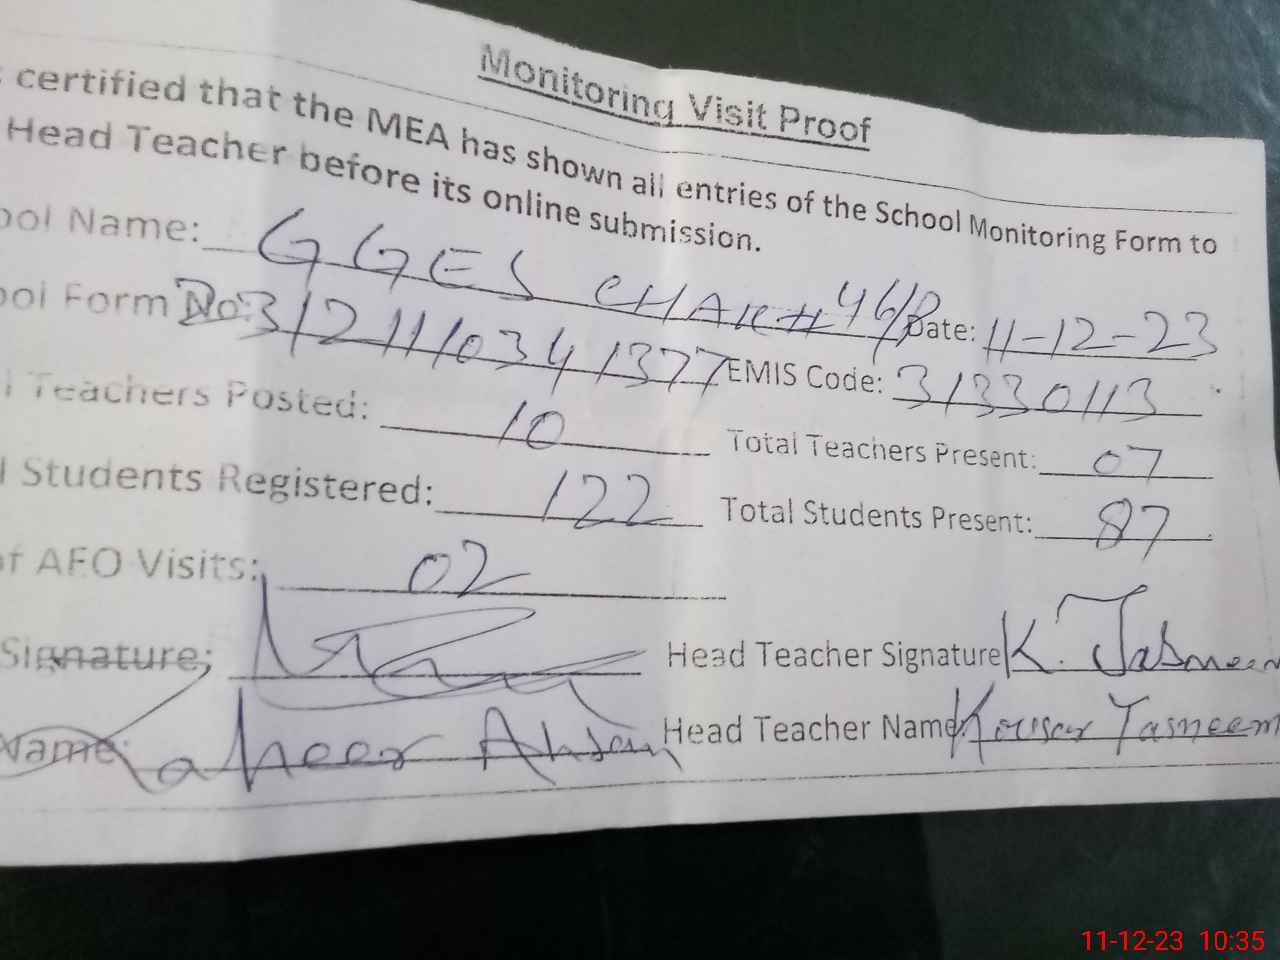 Monitoring Visit Proof
certified that the MEA has shown all entries of the School Monitoring Form to
Head Teacher before its online submission.
ool Name: GGES CHAK# 46/P Date: 11-12-23
ool Form No: 3121110341377 EMIS Code: 31330113
l Teachers Posted: 10 Total Teachers Present: 07
l Students Registered: 122 Total Students Present: 87
of AEO Visits: 02
Signature: Head Teacher Signature K. Tasneem
Name: Zaheer Ahsan Head Teacher Name: Kousar Tasneem
11-12-23 10:35